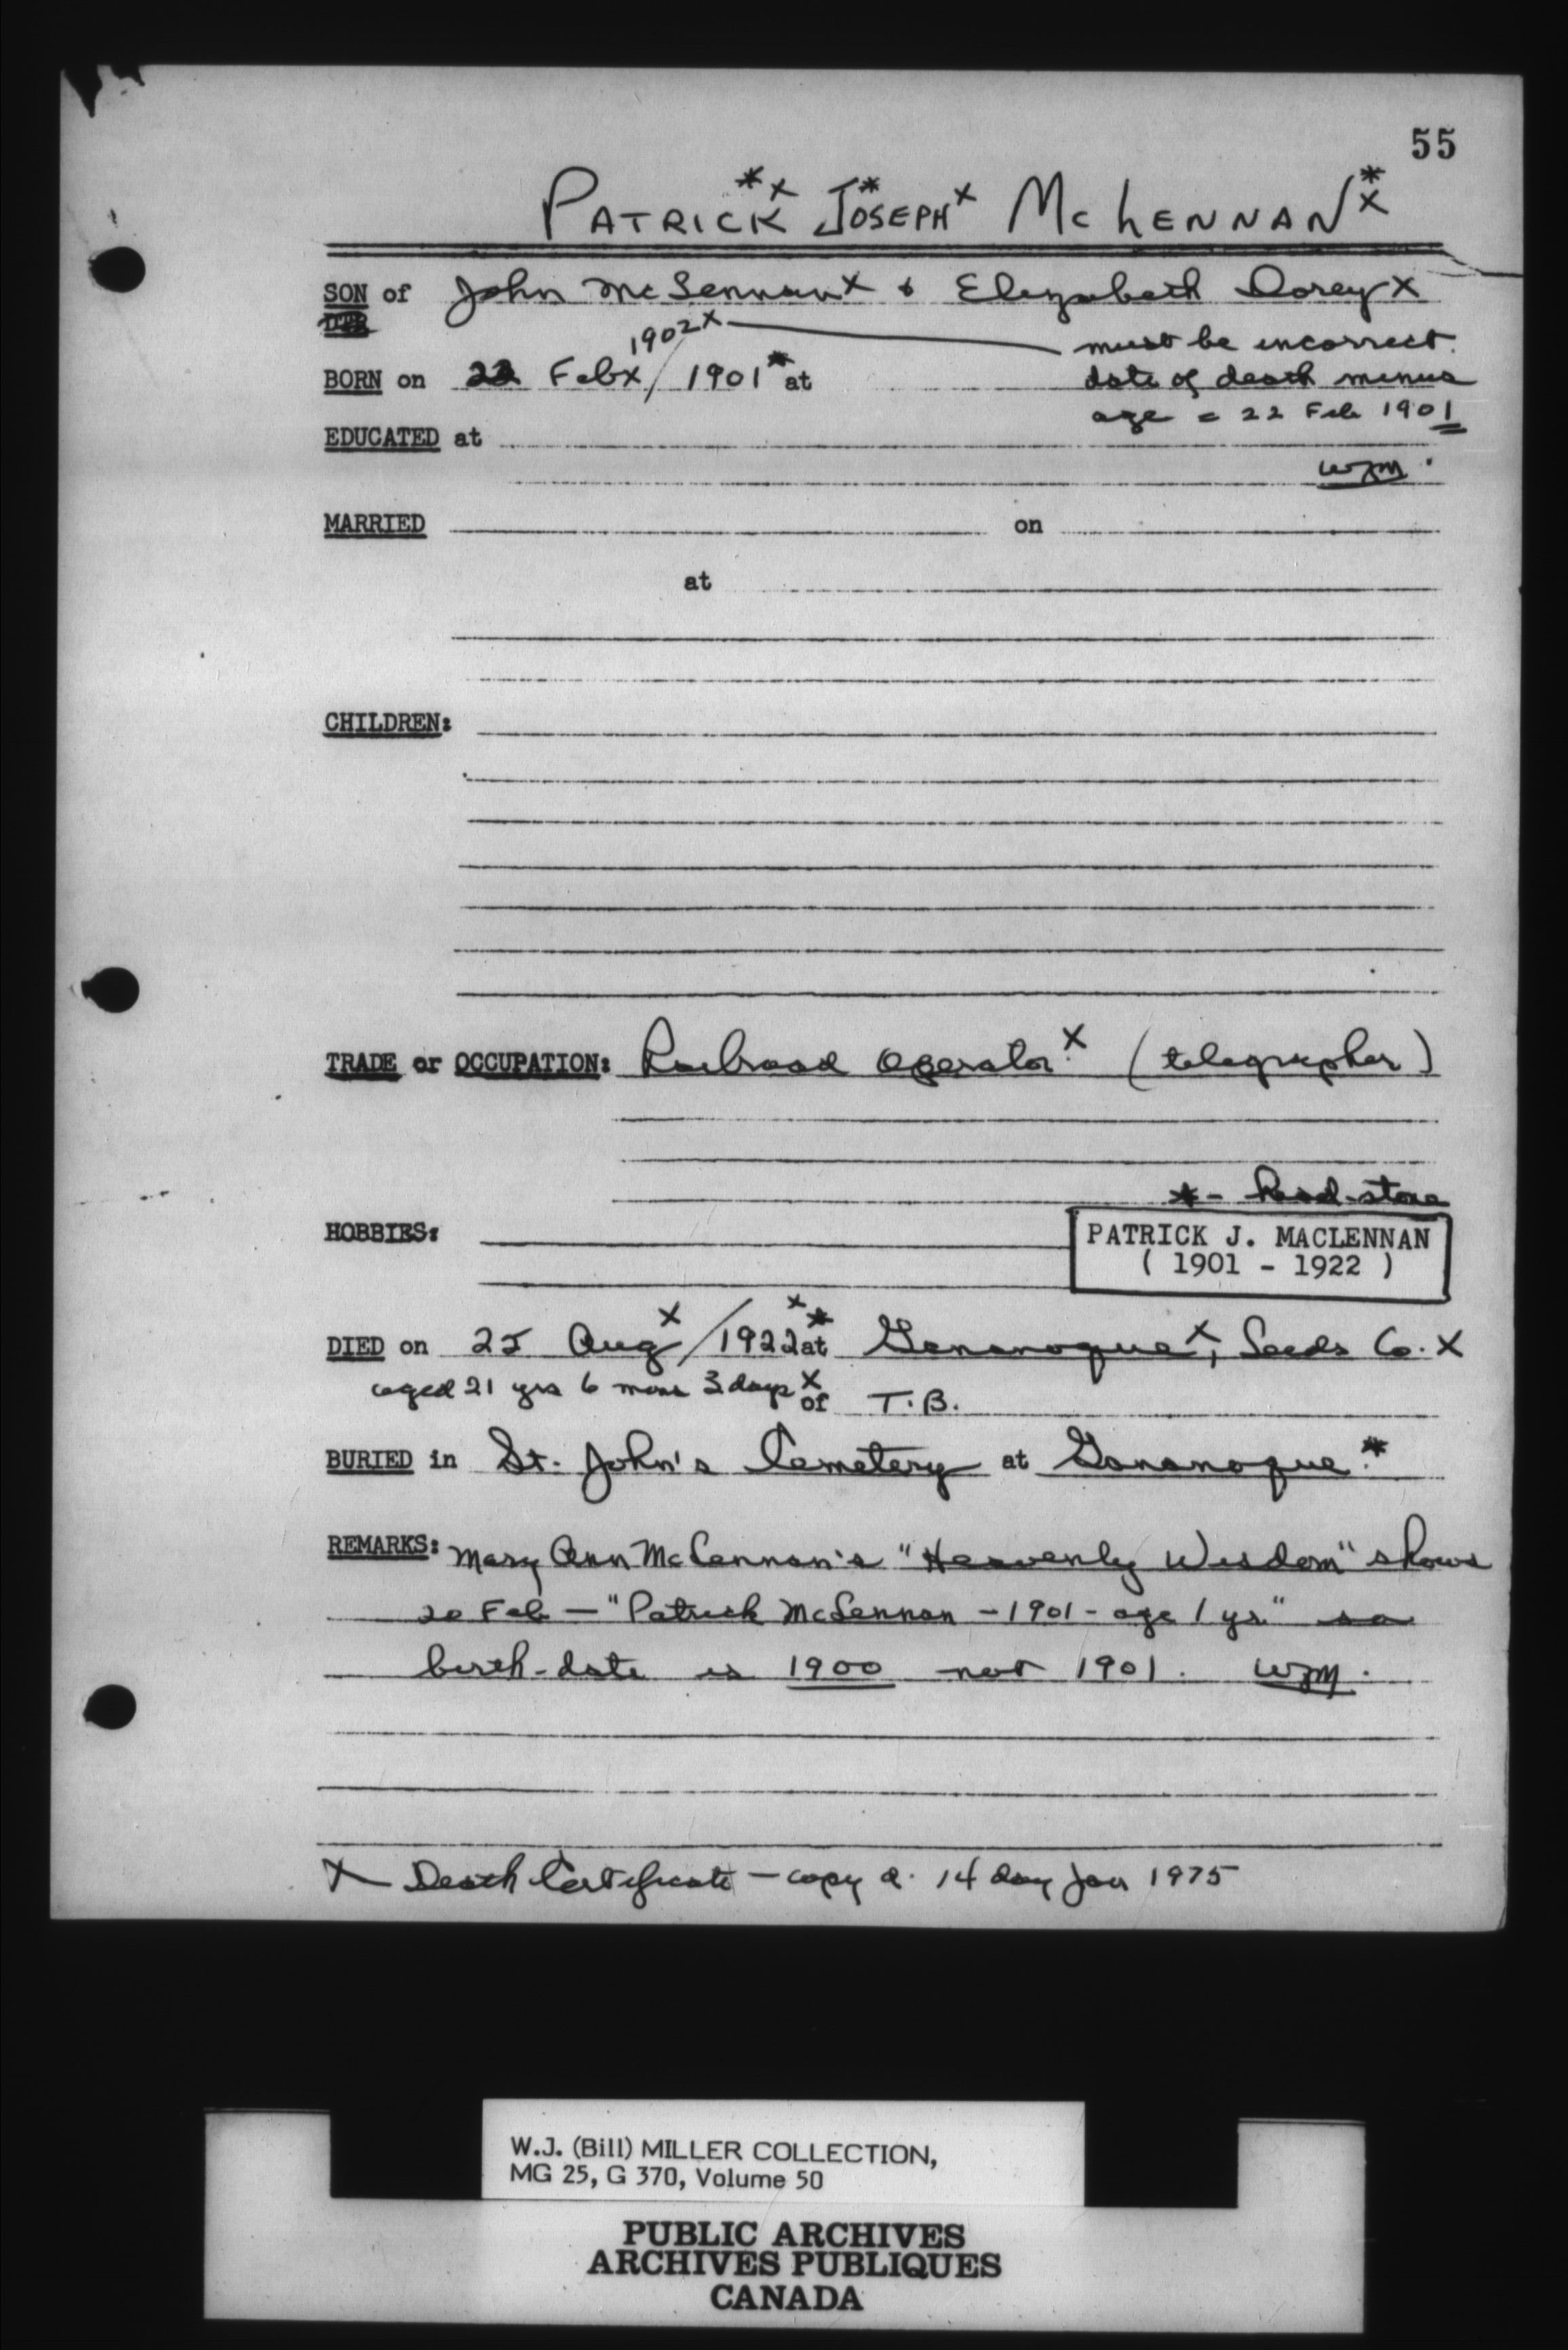 55
PATRICK*x JOSEPH*x McLENNAN*x
SON of John McLennan x & Elizabeth Dorey x
DTR
1902x must be incorrect.
BORN on 22 Feb x/ 1901* at date of death minus
age = 22 Feb 1901
EDUCATED at
WJM.
MARRIED on
at
CHILDREN:
TRADE or OCCUPATION: Railroad Operator.x (telegrapher)
* - head-stone
HOBBIES:
PATRICK J. MACLENNAN
( 1901 - 1922 )
DIED on 25 Aug x/1922x* at Gananoque x, Leeds Co. x
aged 21 yrs 6 mons 3 days x of T.B.
BURIED in St. John's Cemetery at Gananoque.*
REMARKS: Mary Ann McLennan's "Heavenly Wisdom" shows
20 Feb — "Patrick McLennan - 1901 - age 1 yr" so
birth-date is 1900 not 1901. WJM.
x Death Certificate — copy d. 14 day Jan 1975
W.J. (Bill) MILLER COLLECTION,
MG 25, G 370, Volume 50
PUBLIC ARCHIVES
ARCHIVES PUBLIQUES
CANADA